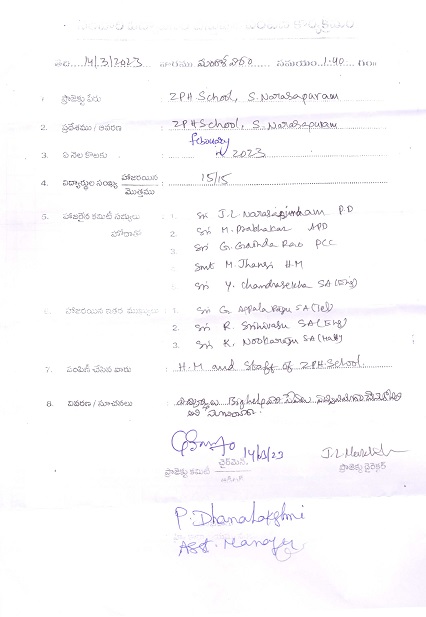 తేది 14/3/2023 వారము మంగళవారం సమయం 1:40 గం॥
1. ప్రాజెక్టు పేరు : ZPH School, S. Narasapuram
2. ప్రదేశము / ఆవరణ : ZPH School, S. Narasapuram
February
3. ఏ నెల కొలకు : 2023
4. విద్యార్థుల సంఖ్య హాజరయిన / మొత్తము : 15/15
5. హాజరైన కమిటీ సభ్యులు : 1. Sri J.L Narasimham P.D
హోదాతో 2. Sri M. Prabhakar APD
3. Sri G. Govinda Rao PCC
Smt M. Jhansi H.M
Sri Y. Chandrasekhar SA (Eng)
6. హాజరయిన ఇతర ముఖ్యులు : 1. Sri G. Gopala Raju SA (Tel)
2. Sri R. Srinivasu SA (Eng)
3. Sri K. Nookaraju SA (Mat)
7. పంపిణీ చేసిన వారు : H.M and Staff of ZPH School.
8. వివరణ / సూచనలు : Bighelp
14/03/23
ప్రాజెక్టు కమిటీ చైర్మెన్
ప్రాజెక్టు డైరెక్టర్
P. Dhanalakshmi
Asst. Manager